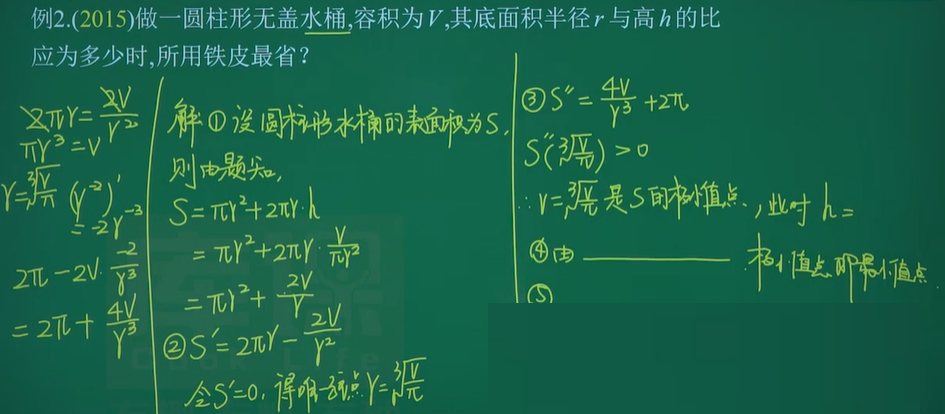 例2.(2015)做一圆柱形无盖水桶,容积为V,其底面积半径r与高h的比
应为多少时,所用铁皮最省？
2πr=2V/r²
πr³=V
r=∛(V/π) (r⁻²)′
=-2r⁻³
2π-2V·-2/r³
=2π+4V/r³
解①设圆柱形水桶的表面积为S,
则由题知,
S=πr²+2πr·h
=πr²+2πr·V/πr²
=πr²+2V/r
②S′=2πr-2V/r²
令S′=0,得唯一驻点r=∛(V/π)
③S″=4V/r³+2π
S″(∛(V/π))>0
∴r=∛(V/π)是S的极小值点,此时h=
④由————极小值点即最小值点
⑤